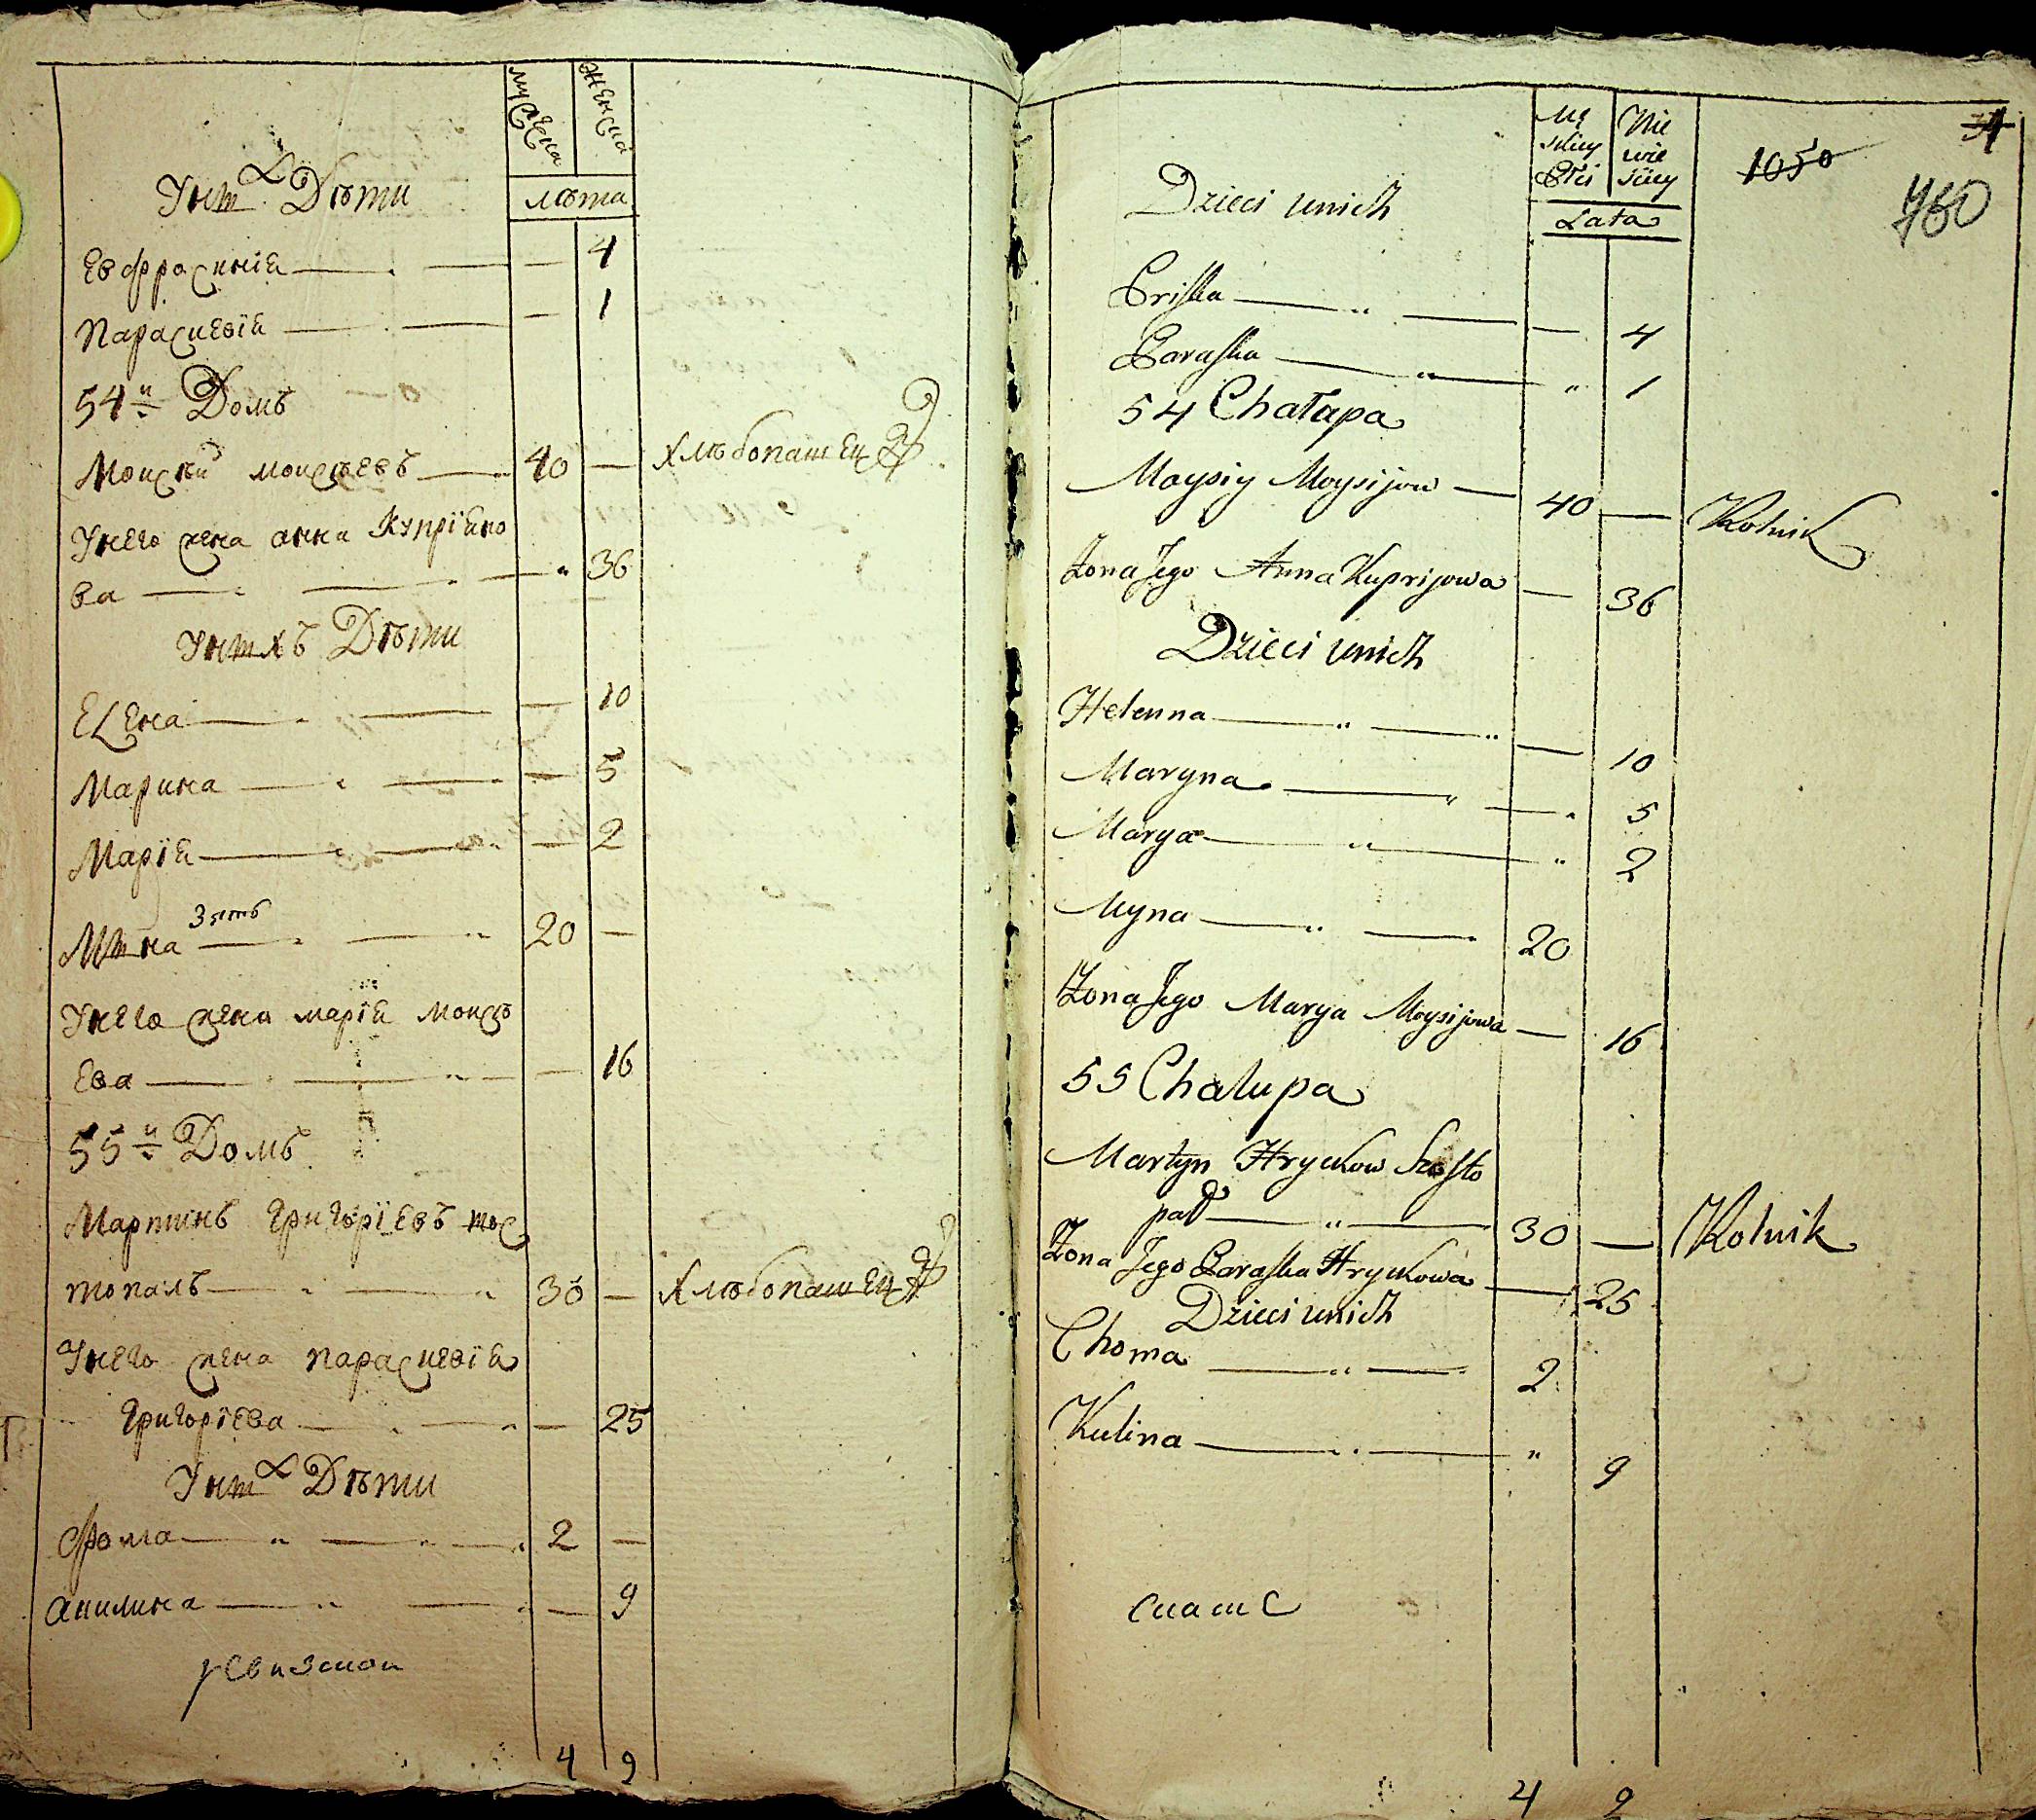 мужеска
женска
У них Дѣти
лѣта
Евфросинїя — — — 4
Парасковїя — — — 1
54й Домъ
Моисѣй моисѣевъ — 40 — хлѣбопашец
У него жена анна Купрїяно
ва — — — " 36
У нихъ Дѣти
Елена — — — 10
Марина — — — 5
Марїя — — — 2
Зять
Мина — — 20 —
У него жена марїя Моисѣ
ева — — — 16
55й Домъ
Мартинъ Григорїевъ шос
топалъ — 30 — Хлѣбопашец
У него жена парасковїя
Григорїева — — — 25
У них Дѣти
Фома — — 2 —
Акилина — — — 9
ревизской
4 9
Mę
skiey
Płci
Nie
wie
sciey
1050
31
760
Dzieci u nich
Lata
Priska — " — — 4
Paraska — " — " 1
54 Chałupa
Moysiy Moysijow — 40 — Rolnik
Żona Jego Anna Kuprijowa — 36
Dzieci u nich
Helenna — " — " — 10
Maryna — " — " 5
Marya — " — " 2
Myna — " — 20
Żona Jego Marya Moysijowa — 16
55 Chalupa
Martyn Hryckow Szosto
pał — " — 30 — Rolnik
Żona Jego Paraska Hryckowa — 25
Dzieci u nich
Choma — " — 2
Kulina — " — " 9
4 9